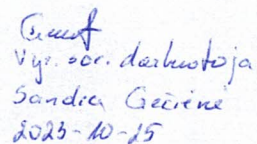 Vyr. soc. darbuotoja
Sandra Gečienė
2023-10-25